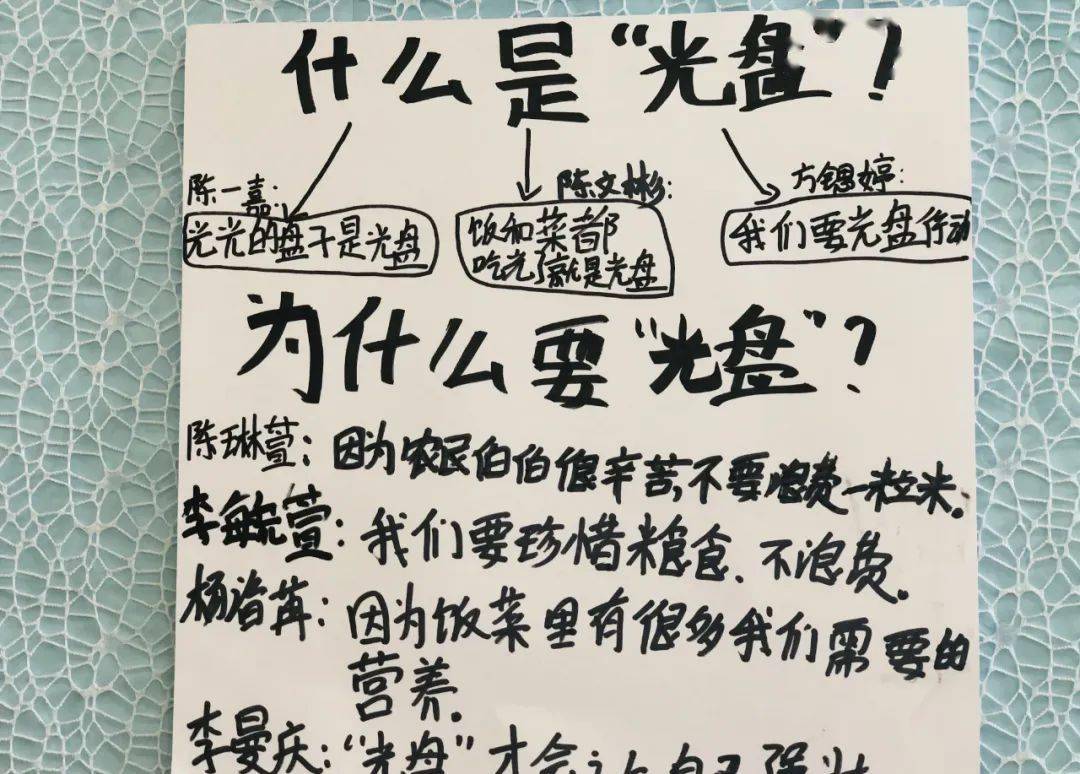 什么是“光盘”？
陈一嘉：
光光的盘子是光盘
陈文彬：
饭和菜都
吃光了就是光盘
方锶婷：
我们要光盘行动
为什么要“光盘”？
陈琳萱：因为农民伯伯很辛苦，不要浪费一粒米。
李敏萱：我们要珍惜粮食、不浪费。
杨洽苒：因为饭菜里有很多我们需要的
营养。
李曼庆：“光盘”才会让自己强壮